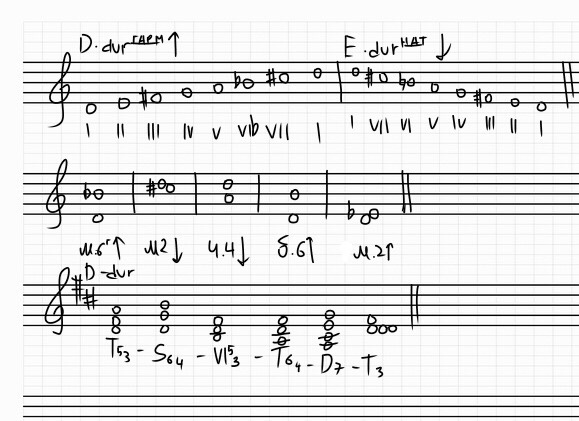 D·dur гарм ↑ E·dur нат ↓
I II III IV V VIb VII I I VII VI V IV III II I
м.6г↑ м2↓ ч.4↓ б.6↑ м.2↑
D-dur
T53 - S64 - VI53 - T64 - D7 - T3